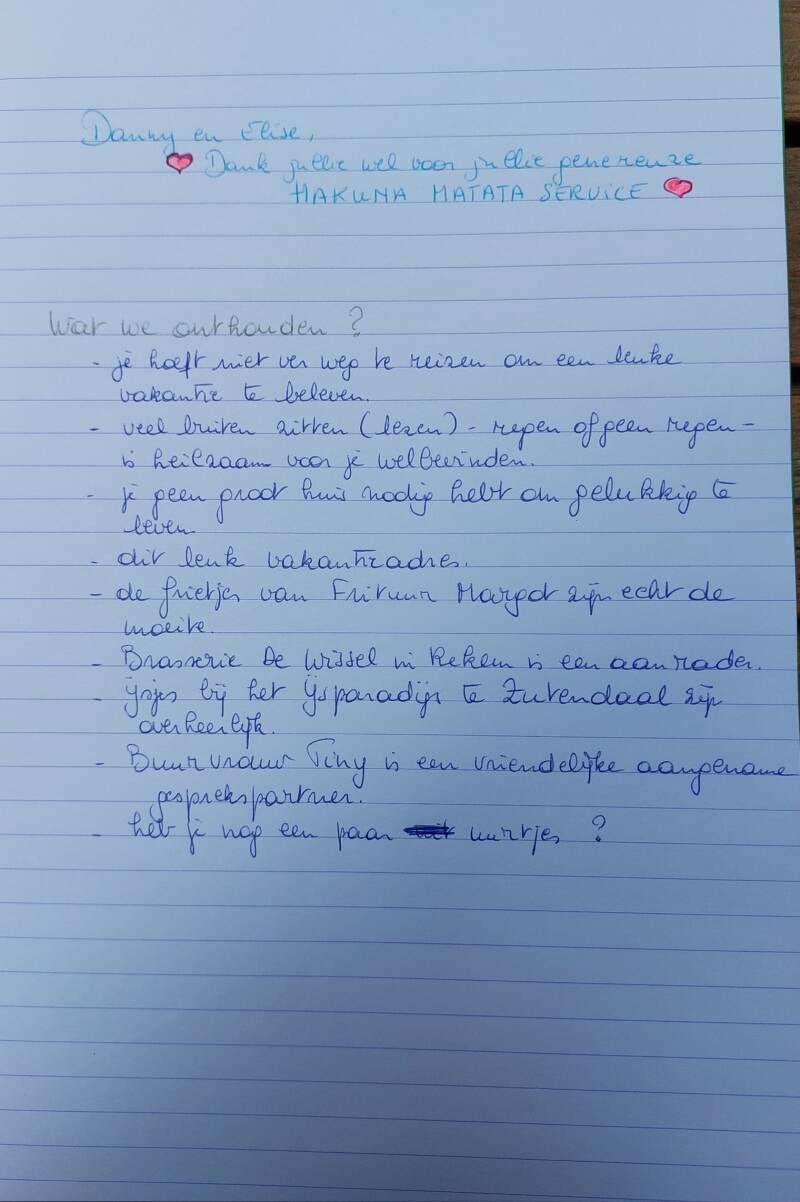 Danny en Elise,
Dank jullie wel voor jullie genereuze
HAKUNA MATATA SERVICE
Wat we onthouden ?
- je hoeft niet ver weg te reizen om een leuke
vakantie te beleven.
- veel buiten zitten (lezen) - regen of geen regen -
is heilzaam voor je welbevinden.
- je geen groot huis nodig hebt om gelukkig te
leven
- dit leuk vakantieadres.
- de frietjes van Frituur Margot zijn echt de
moeite.
- Brasserie De Wissel in Rekem is een aanrader.
- Ijsjes bij het Ijsparadijs te Zutendaal zijn
overheerlijk.
- Buurvrouw Tiny is een vriendelijke aangename
gesprekspartner.
- heb je nog een paar uurtjes ?